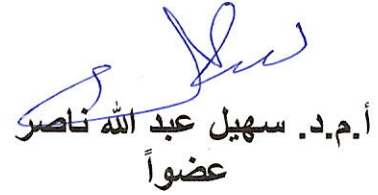 أ.م.د. سهيل عبد الله ناصر
عضواً